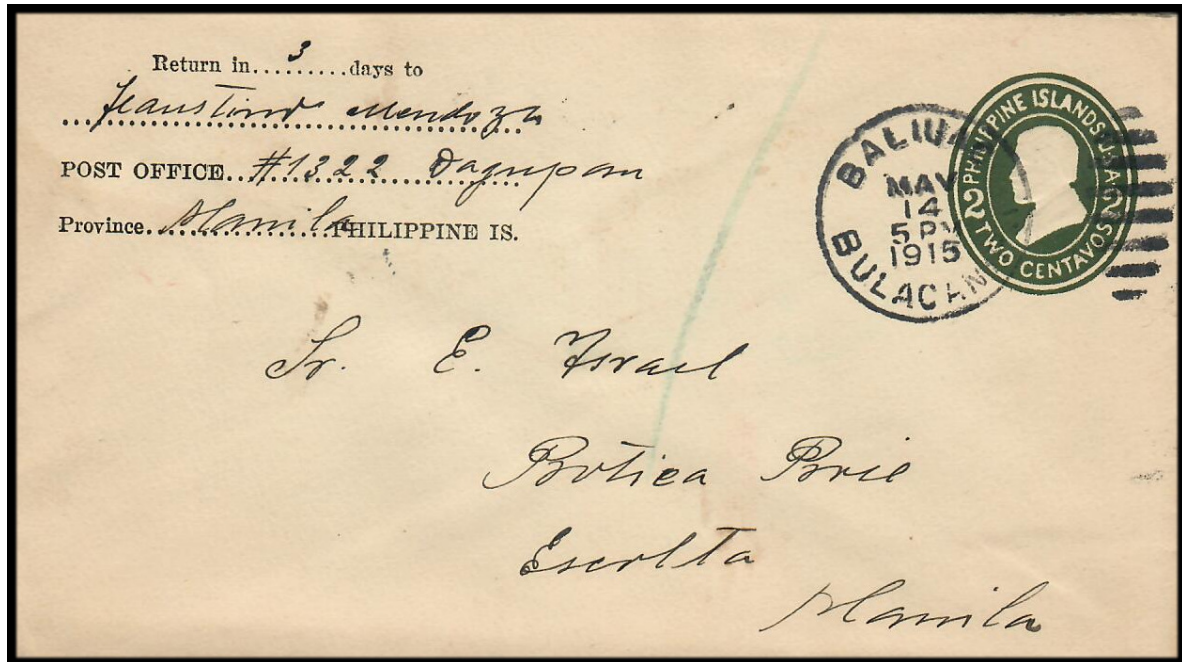 Return in....3.....days to
Faustino Mendoza
POST OFFICE..#1322 Dagupan
Province.Manila PHILIPPINE IS.
BALIUAG
MAY
14
5 PM
1915
BULACAN
PHILIPPINE ISLANDS U.S.A.
2 2
TWO CENTAVOS
Sr. E. Israel
Botica Boie
Escolta
Manila